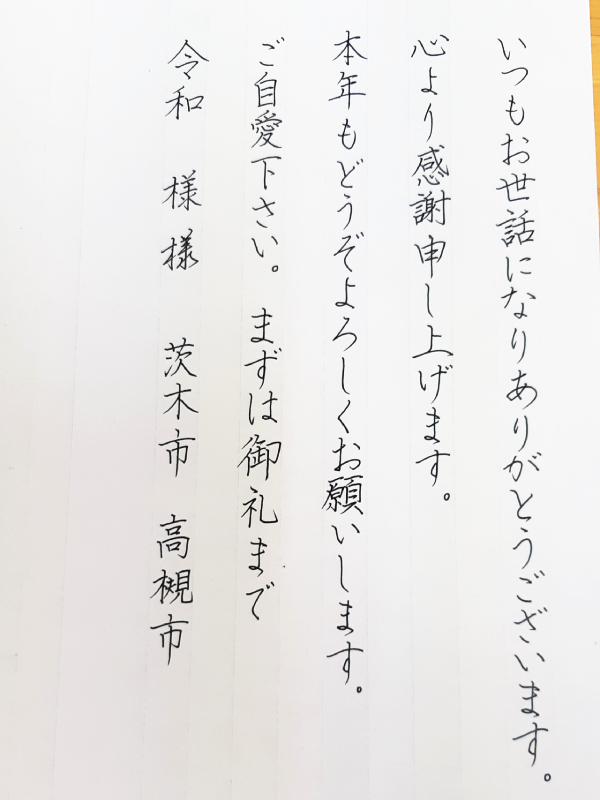 いつもお世話になりありがとうございます。
心より感謝申し上げます。
本年もどうぞよろしくお願いします。
ご自愛下さい。 まずは御礼まで
令和 様様 茨木市 高槻市